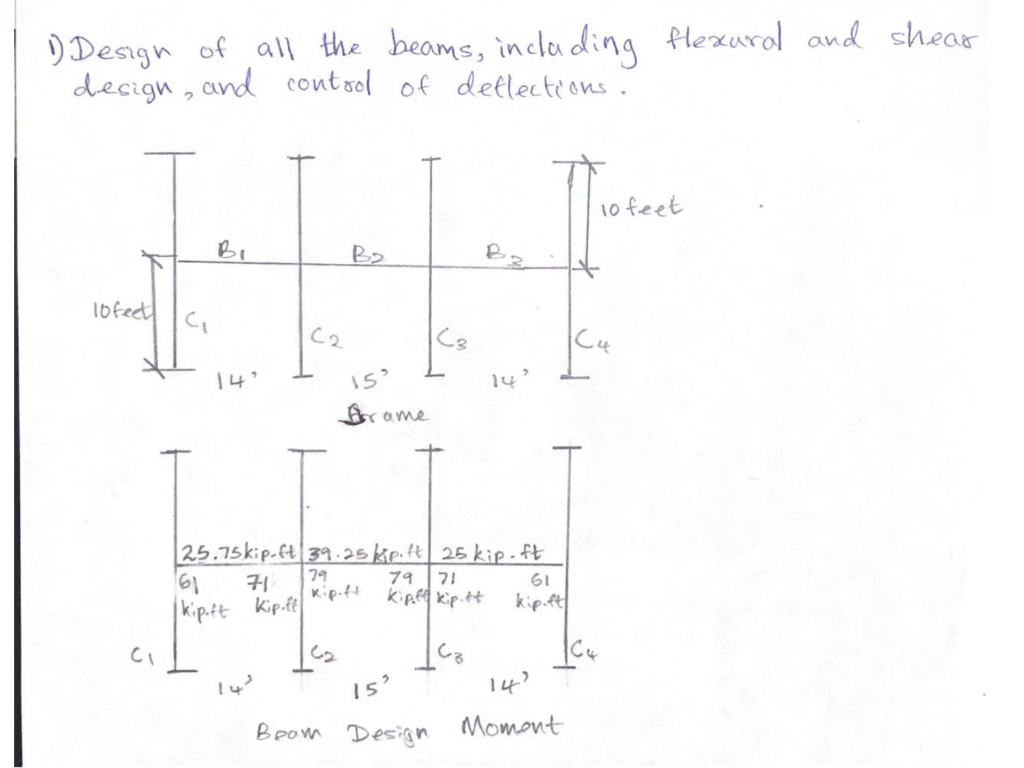 1) Design of all the beams, including flexural and shear
design, and control of deflections.
10 feet
B1 B2 B3
10feet
C1 C2 C3 C4
14' 15' 14'
Frame
25.75kip.ft 39.25 kip.ft 25 kip.ft
61 71 79 79 71 61
kip.ft kip.ft kip.ft kip.ft kip.ft kip.ft
C1 C2 C3 C4
14' 15' 14'
Beam Design Moment